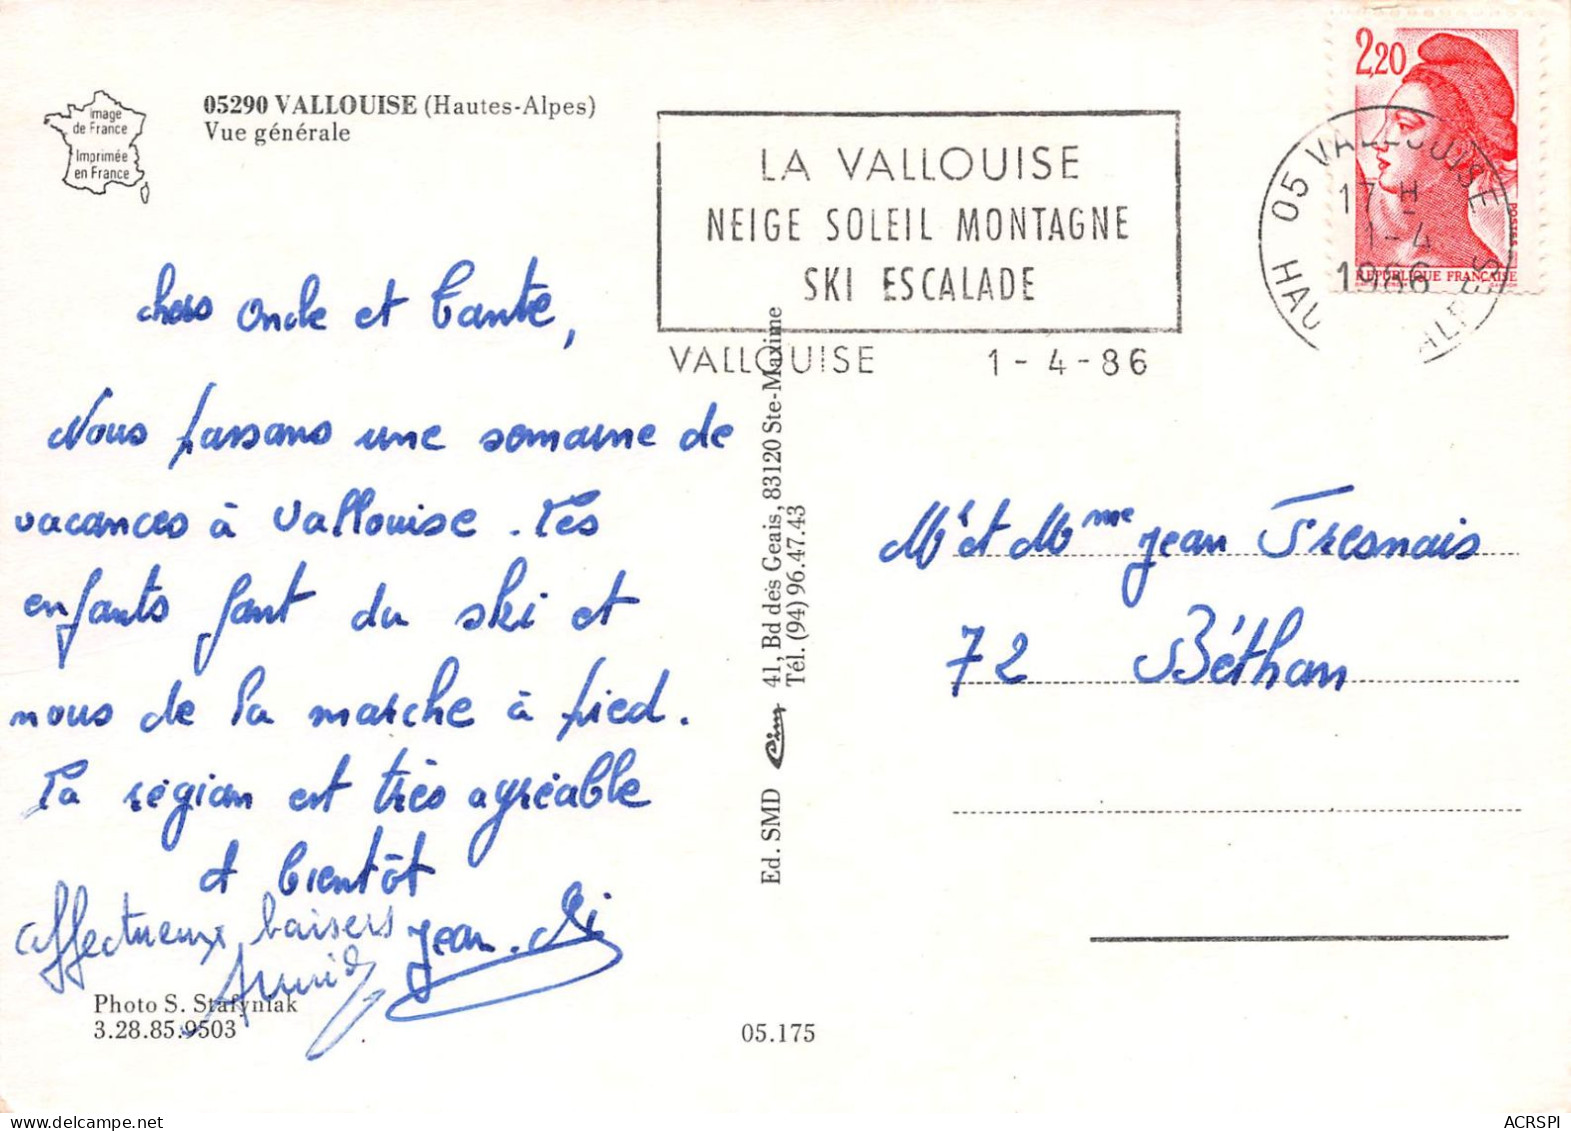 Image
de France
Imprimée
en France
05290 VALLOUISE (Hautes-Alpes)
Vue générale
LA VALLOUISE
NEIGE SOLEIL MONTAGNE
SKI ESCALADE
VALLOUISE 1-4-86
2,20
POSTES
REPUBLIQUE FRANÇAISE
05 VALLOUISE
17 H
1-4
1986
HAUTES ALPES
chers Oncle et Tante,
Nous passons une semaine de
vacances à Vallouise. Les
enfants font du ski et
nous de la marche à pied.
La région est très agréable
A bientôt
affectueux baisers Jean.
Photo S. Stafyniak
3.28.85.9503
Ed. SMD Cim 41, Bd des Geais, 83120 Ste-Maxime
Tél. (94) 96.47.43
05.175
Mr et Mme Jean Fresnais
72 Béthon
ACRSPI